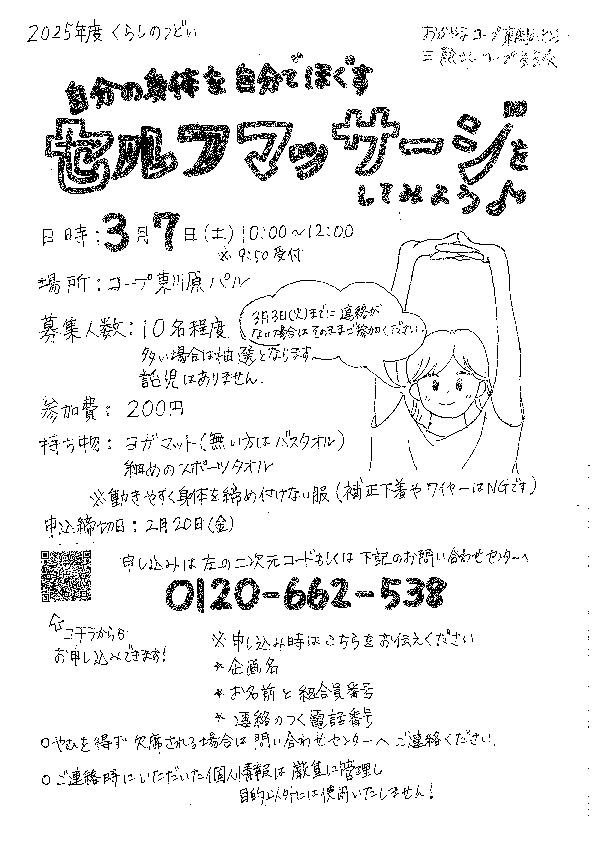 2025年度 くらしのつどい
おかやまコープ
自分の身体を自分でほぐす
セルフマッサージを
してみよう♪
日時：3月7日(土)10:00～12:00
※9:50受付
場所：コープ東川原パル
募集人数：10名程度
多い場合は抽選となります。
託児はありません。
3月3日(火)までに連絡が
ない場合はそのままご参加ください。
参加費：200円
持ち物：ヨガマット(無い方はバスタオル)
細めのスポーツタオル
※動きやすく身体を締め付けない服(補正下着やワイヤーはNGです)
申込締切日：2月20日(金)
申し込みは左の二次元コードもしくは下記のお問い合わせセンターへ
0120-662-538
コチラからも
お申し込みできます!
※申し込み時はこちらをお伝えください
*企画名
*お名前と組合員番号
*連絡のつく電話番号
○やむを得ず欠席される場合は問い合わせセンターへご連絡ください。
○ご連絡時にいただいた個人情報は厳重に管理し
目的以外には使用いたしません!